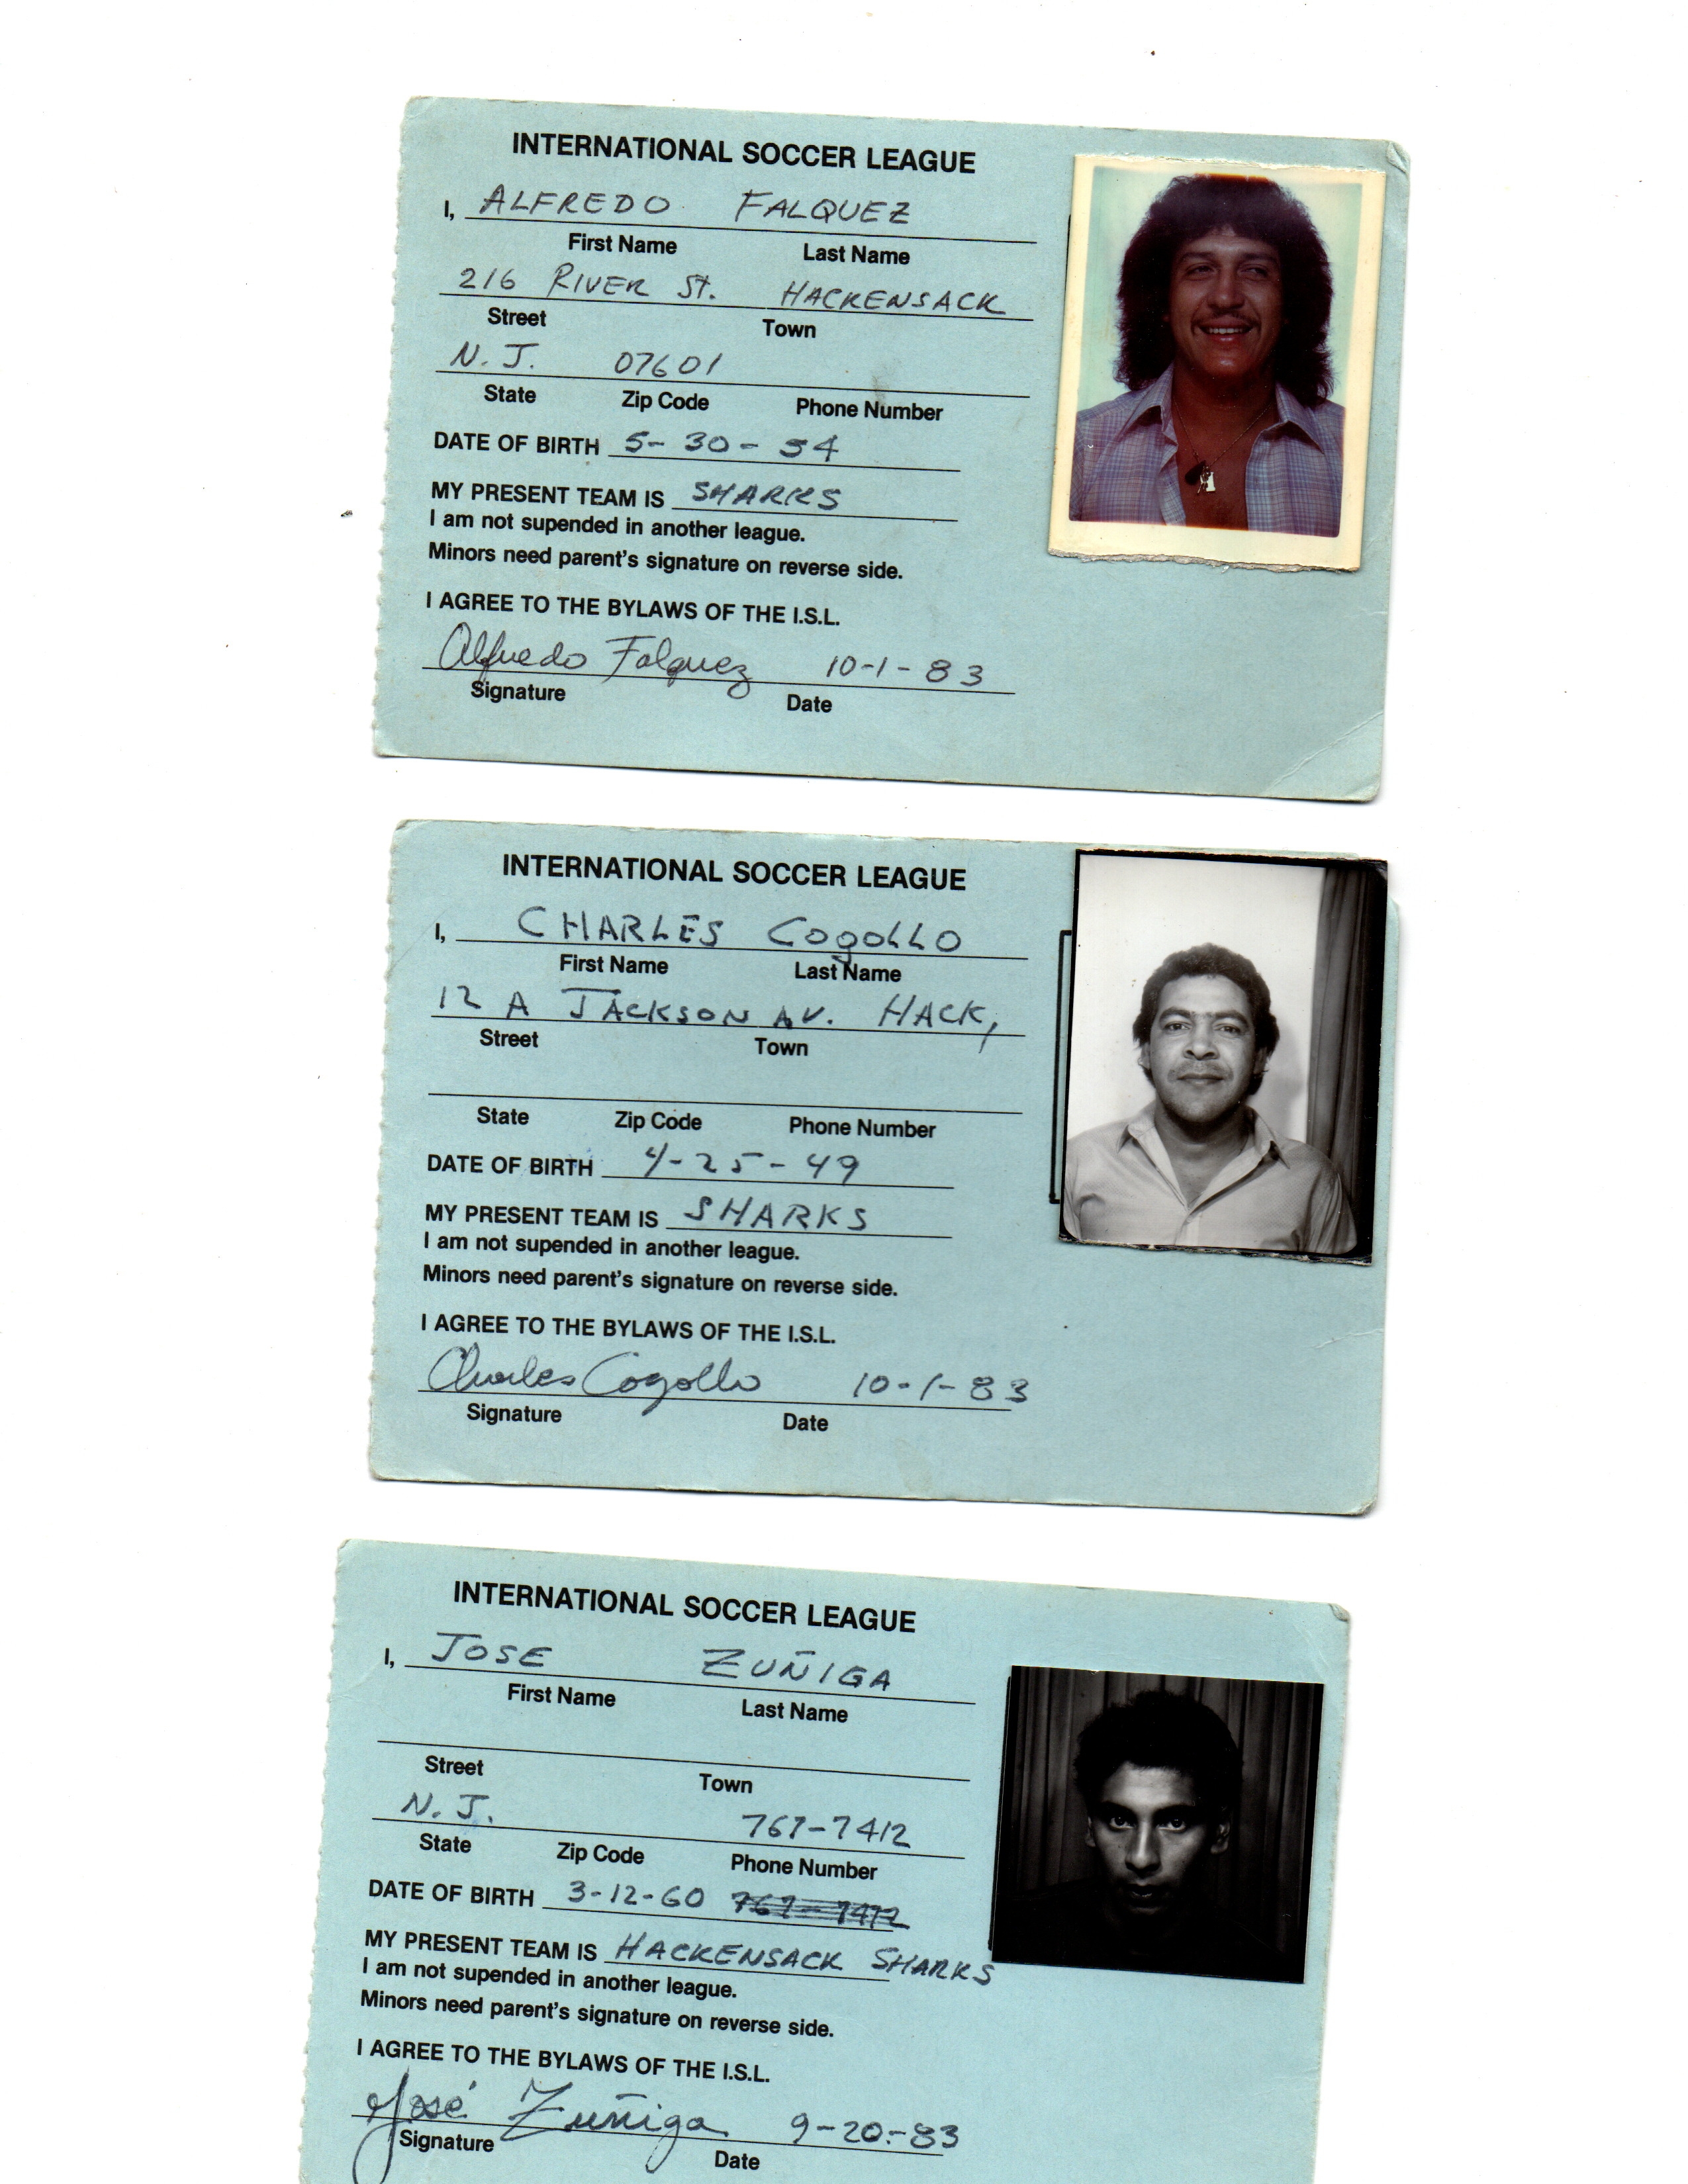 INTERNATIONAL SOCCER LEAGUE
I, ALFREDO FALQUEZ
First Name Last Name
216 RIVER St. HACKENSACK
Street Town
N.J. 07601
State Zip Code Phone Number
DATE OF BIRTH 5-30-54
MY PRESENT TEAM IS SHARKS
I am not supended in another league.
Minors need parent's signature on reverse side.
I AGREE TO THE BYLAWS OF THE I.S.L.
Alfredo Falquez 10-1-83
Signature Date
INTERNATIONAL SOCCER LEAGUE
I, CHARLES COgOLLO
First Name Last Name
12 A JACKSON AV. HACK,
Street Town
State Zip Code Phone Number
DATE OF BIRTH 4-25-49
MY PRESENT TEAM IS SHARKS
I am not supended in another league.
Minors need parent's signature on reverse side.
I AGREE TO THE BYLAWS OF THE I.S.L.
Charles Cogollo 10-1-83
Signature Date
INTERNATIONAL SOCCER LEAGUE
I, JOSE ZUÑIGA
First Name Last Name
Street Town
N.J. 767-7412
State Zip Code Phone Number
DATE OF BIRTH 3-12-60 767-7412
MY PRESENT TEAM IS HACKENSACK SHARKS
I am not supended in another league.
Minors need parent's signature on reverse side.
I AGREE TO THE BYLAWS OF THE I.S.L.
José Zuñiga 9-20-83
Signature Date